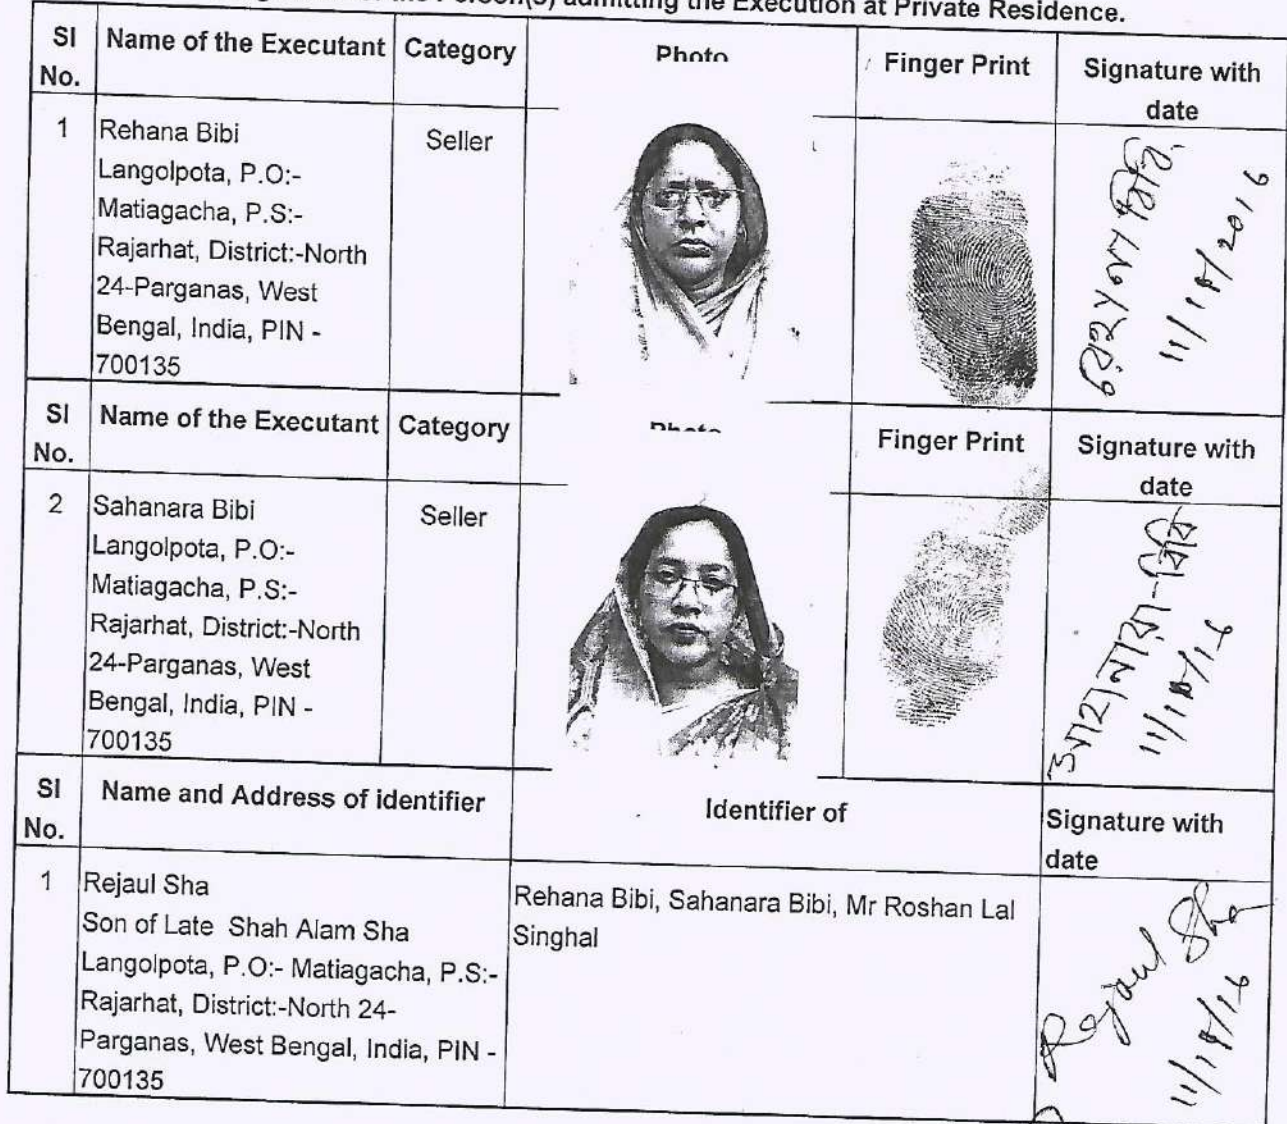 the Person(s) admitting the Execution at Private Residence.
SI No. Name of the Executant Category Photo Finger Print Signature with date
1 Rehana Bibi
Langolpota, P.O:-
Matiagacha, P.S:-
Rajarhat, District:-North
24-Parganas, West
Bengal, India, PIN -
700135
Seller
বিবি
SI No. Name of the Executant Category Photo Finger Print Signature with date
2 Sahanara Bibi
Langolpota, P.O:-
Matiagacha, P.S:-
Rajarhat, District:-North
24-Parganas, West
Bengal, India, PIN -
700135
Seller
বিবি
SI No. Name and Address of identifier Identifier of Signature with date
1 Rejaul Sha
Son of Late Shah Alam Sha
Langolpota, P.O:- Matiagacha, P.S:-
Rajarhat, District:-North 24-
Parganas, West Bengal, India, PIN -
700135
Rehana Bibi, Sahanara Bibi, Mr Roshan Lal
Singhal
Rejaul Sha